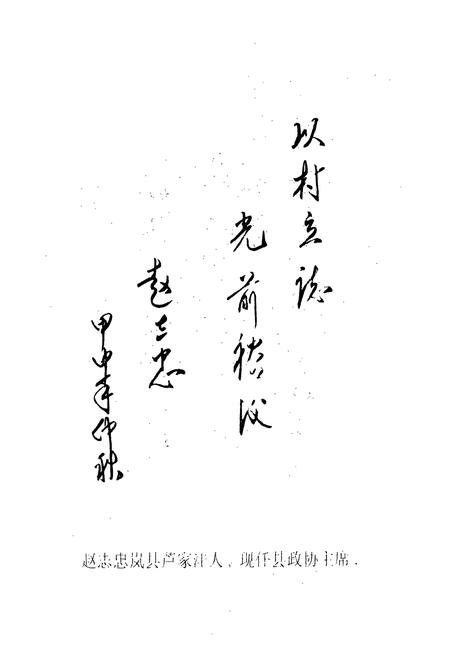 以村立誌
光前裕后
赵志忠
甲申年仲秋
赵志忠岚县芦家汪人，现任县政协主席.